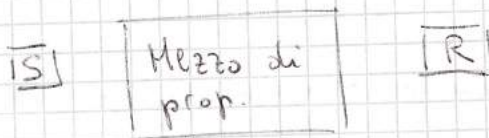 S Mezzo di R
prop.